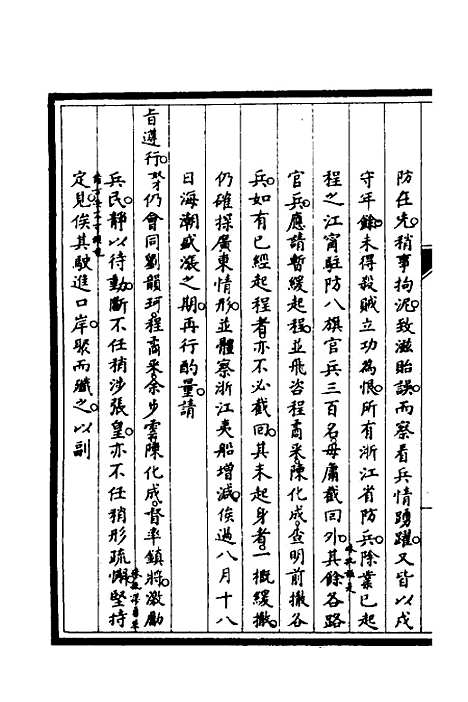 防在先。稍事拘泥。致滋貽誤。而察看兵情踴躍。又皆以戍
守年餘。未得殺賊立功為恨。所有浙江省防兵。除業已起
程之江甯駐防八旗官兵三百名。毋庸截回外。其餘各路
官兵。應請暫緩起程。並飛咨程矞采。陳化成。查明前撤各
兵。如有已經起程者。亦不必截回。其未起身者。一概緩撤。
仍確探廣東情形。並體察浙江夷船增減。俟過八月十八
日海潮盛漲之期。再行酌量。請
旨遵行。奴才仍會同劉韻珂。程矞采。余步雲。陳化成。督率鎮將。激勵
兵民。靜以待動。斷不任稍涉張皇。亦不任稍形疏懈。堅持
定見。俟其駛進口岸。聚而殲之。以副